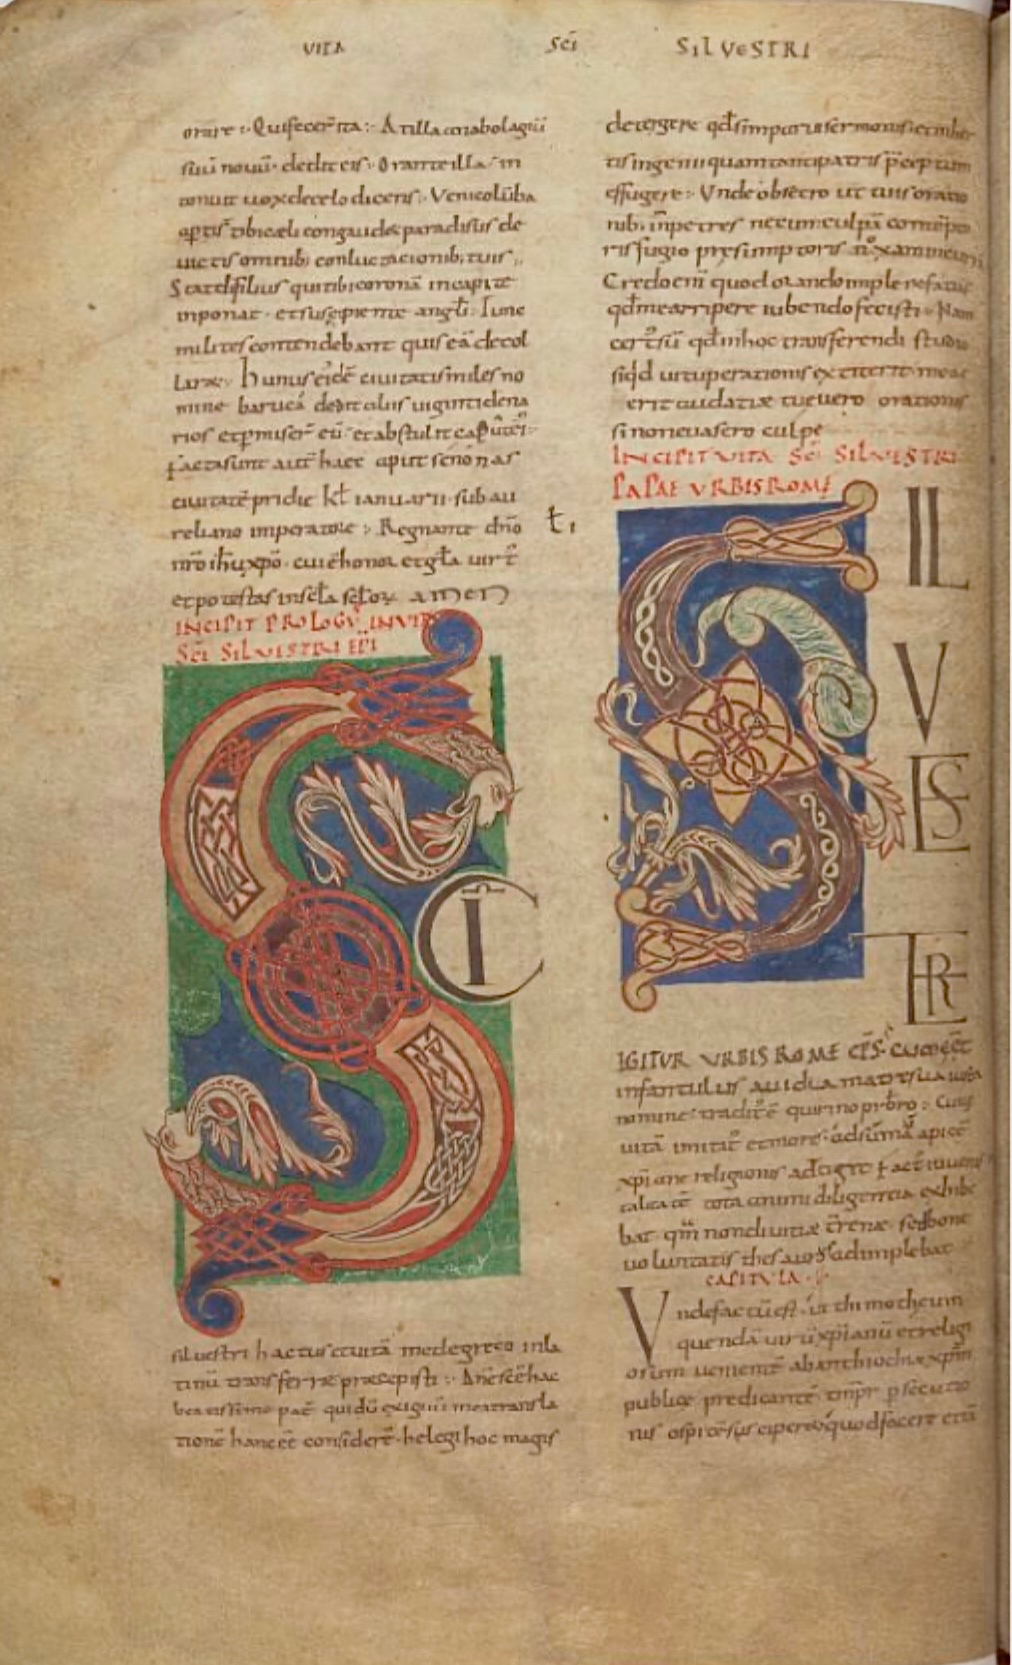 VITA SC̄I SILVESTRI
orare :· Qui fecer̄ ita :· At illa anabolagiū
suū novū · dedit eis :· Orante illa in
tonuit vox de celo dicens :· Veni colūba
apertis tibi celi congaudet paradisus de
victis omnib; conluctacionib; tuis ·
Stat dī filius qui tibi coronā in capite
inponat · et suscipiente angl̄i · Tunc
milites contendebant quis eā decol
laret · hunus eidē civitatis miles no
mine barucā dedit aliis viginti dena
rios et permiser̄ eū et abstulit capūt ei :·
facta sunt autē haec aput senonas
civitatē pridie kł ianuarii · sub au
reliano imperatore :· Regnante dn̄o
nr̄o ih̄u xp̄o · cui ē honor et gl̄a virt̄
et potestas in scl̄a scl̄or amen
INCIPIT PROLOGV̄ IN VITA
SC̄I SILVESTRI EP̄I
S
Ī C
silvestri hactus vitā me de greco in la
tinū transferre praecepisti :·
beatissime pat̄ qui dū exiguū meā transla
tionē hanc eē considerē · helegi hoc magis
detegere qd̄ simpcioris sermonis
tis ingenii quam tanti patris p̄ceptum
effugere :· Unde obsecro ut tuis oratio
nib; īnpetres nec cum culpā contēpto
ris fugio presimptoris noxam incurri
Credo enī quod orando imple re facias
qd̄ me arripere iubendo fecisti :· Nam
cert̄ sū qd̄ in hoc transferendi studio
siq̄d vituperationis extiterit meae
erit audatiae tu vero orationis
si non evasero culpe
INCIPIT VITA SC̄I SILVESTRI
PAPAE URBIS ROME
t̄ i
S
IL
V
ES
TR
E
IGITUR URBIS ROME EP̄S · CUM EĒT
infantulus a vidua matre sua iusta
nomine · tradit̄ ē quirino pr̄bro :· Cuius
vitā imitat̄ et mores · ad sūmā apicē
xp̄iane religionis adtigit fact̄ iuvenis
calitatē tota animi diligentia exhibe
bat · qm̄ non divitiae terrenae sed bone
voluntatis thesauros adimplebat
CAPITVLA · I
Unde factū est · ut thimotheum
quendā virū xp̄ianū et religi
osum venientē ab anthiochia xp̄m
publice predicantē tmp̄r p̄secutio
nis ospicio suscipere quod facere etiā